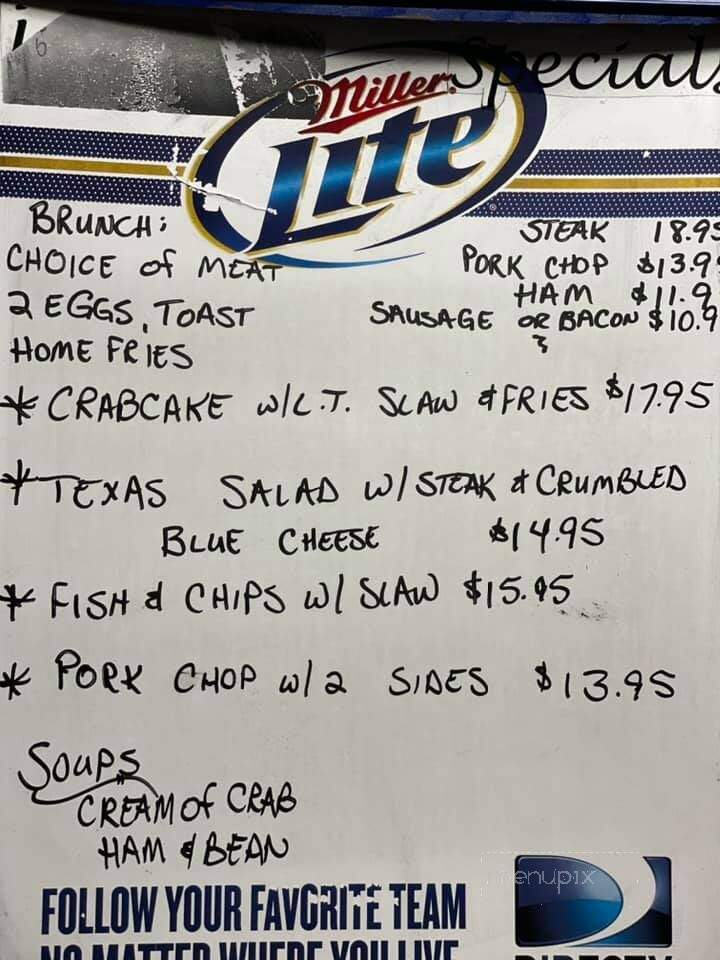 6
Specials
Miller
Lite
BRUNCH: STEAK 18.95
CHOICE of MEAT PORK CHOP $13.9
2 EGGS, TOAST HAM $11.9
SAUSAGE OR BACON $10.9
HOME FRIES
* CRABCAKE w/L.T. SLAW & FRIES $17.95
* TEXAS SALAD W/ STEAK & CRUMBLED
BLUE CHEESE $14.95
* FISH & CHIPS W/ SLAW $15.95
* PORK CHOP w/2 SIDES $13.95
SOUPS
CREAM OF CRAB
HAM & BEAN
FOLLOW YOUR FAVORITE TEAM
NO MATTER WHERE YOU LIVE
menupix
DIRECTV